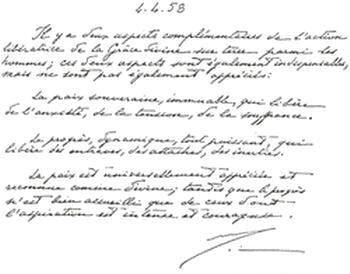 4.4.58
Il y a deux aspects complémentaires de l'action
libératrice de la Grâce divine sur terre parmi les
hommes; ces deux aspects sont également indispensables,
mais ne sont pas également appréciés:
La paix souveraine, immuable, qui libère
de l'anxiété, de la tension, de la souffrance.
Le progrès, dynamique, tout puissant, qui
libère des entraves, des attaches, des inerties.
La paix est universellement appréciée et
reconnue comme divine; tandis que le progrès
n'est bien accueilli que de ceux dont
l'aspiration est intense et courageuse.